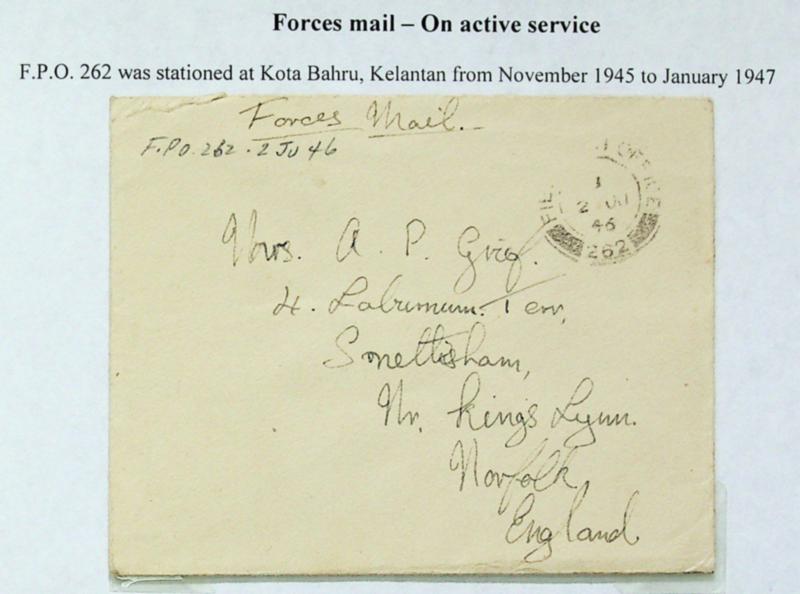 Forces mail – On active service
F.P.O. 262 was stationed at Kota Bahru, Kelantan from November 1945 to January 1947
Forces Mail.
F.P.O. 262 . 2 JU 46
Mrs. A. P.
4. Laburnum. Terr,
Snettisham,
Nr. Kings Lynn.
Norfolk
England
2 JU
46
262